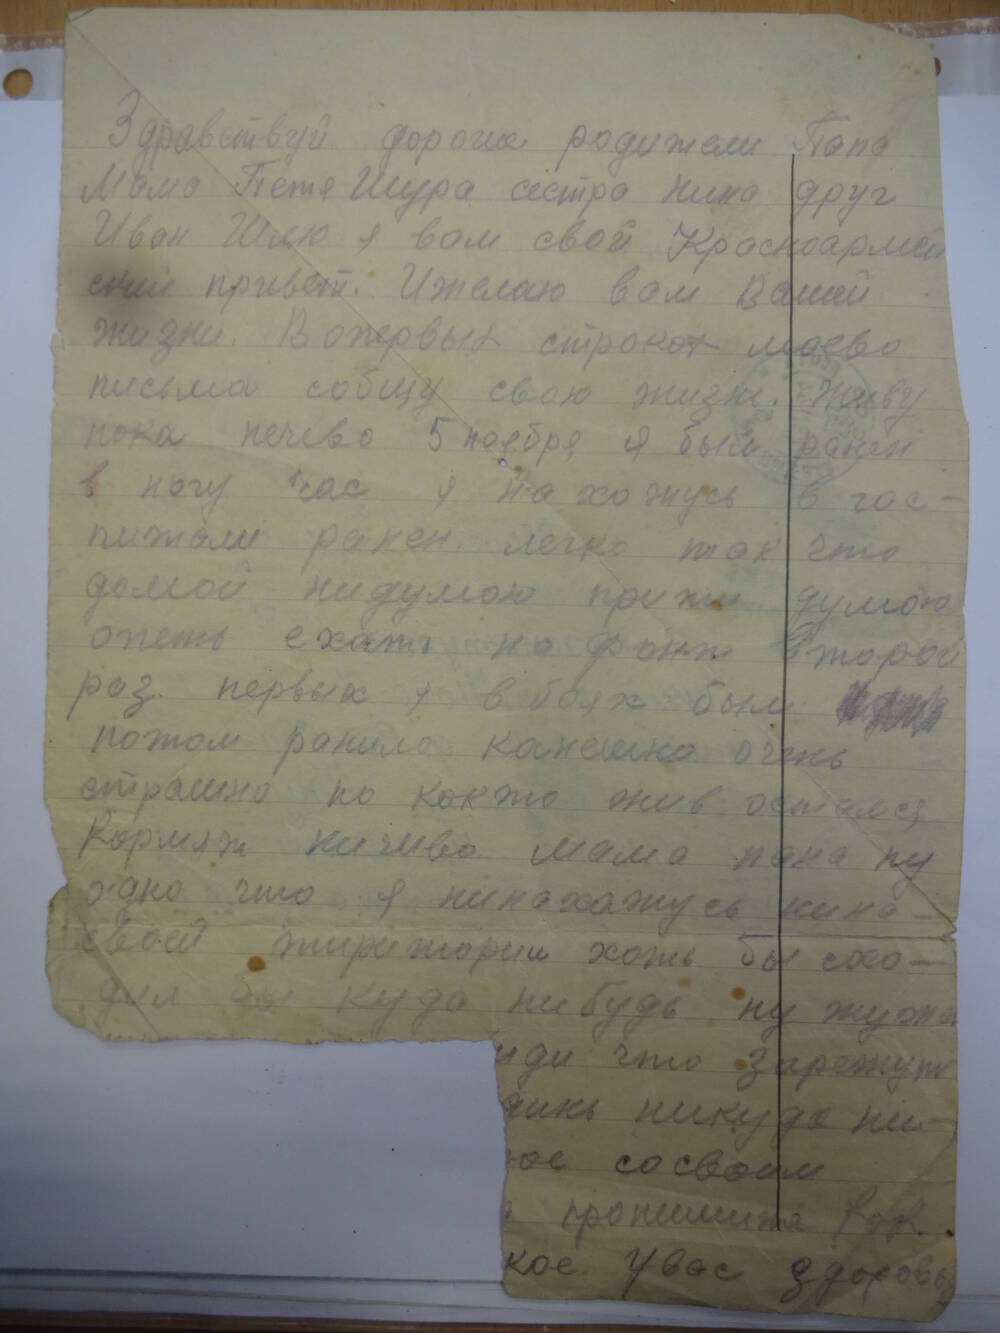 Здравствуй дорогие родители Папа
Мама Петя Шура сестра нина друг
Иван Шлю я вам свой Красноармей
ский привет. Ижелаю вам Вашей
жизни. Вопервых строках моево
письма собщу свою жизнь. Живу
пока нечево 5 ноября я был ранен
в ногу час я нахожусь в гос-
питали ранен легко так что
домой нидумою притти думою
опеть ехать на фронт второй
раз. первых я в боях был
потом ранило канешна очень
страшно но както жив остался
Кормят ничево мама папа ну
одно что я нинахажусь нина-
своей тиритории хоть бы схо-
дил бы куда нибудь ну жужа
иди что зарежут
динь никуда ни-
ое сосвоим
пропишите как
кое Увас здоровь